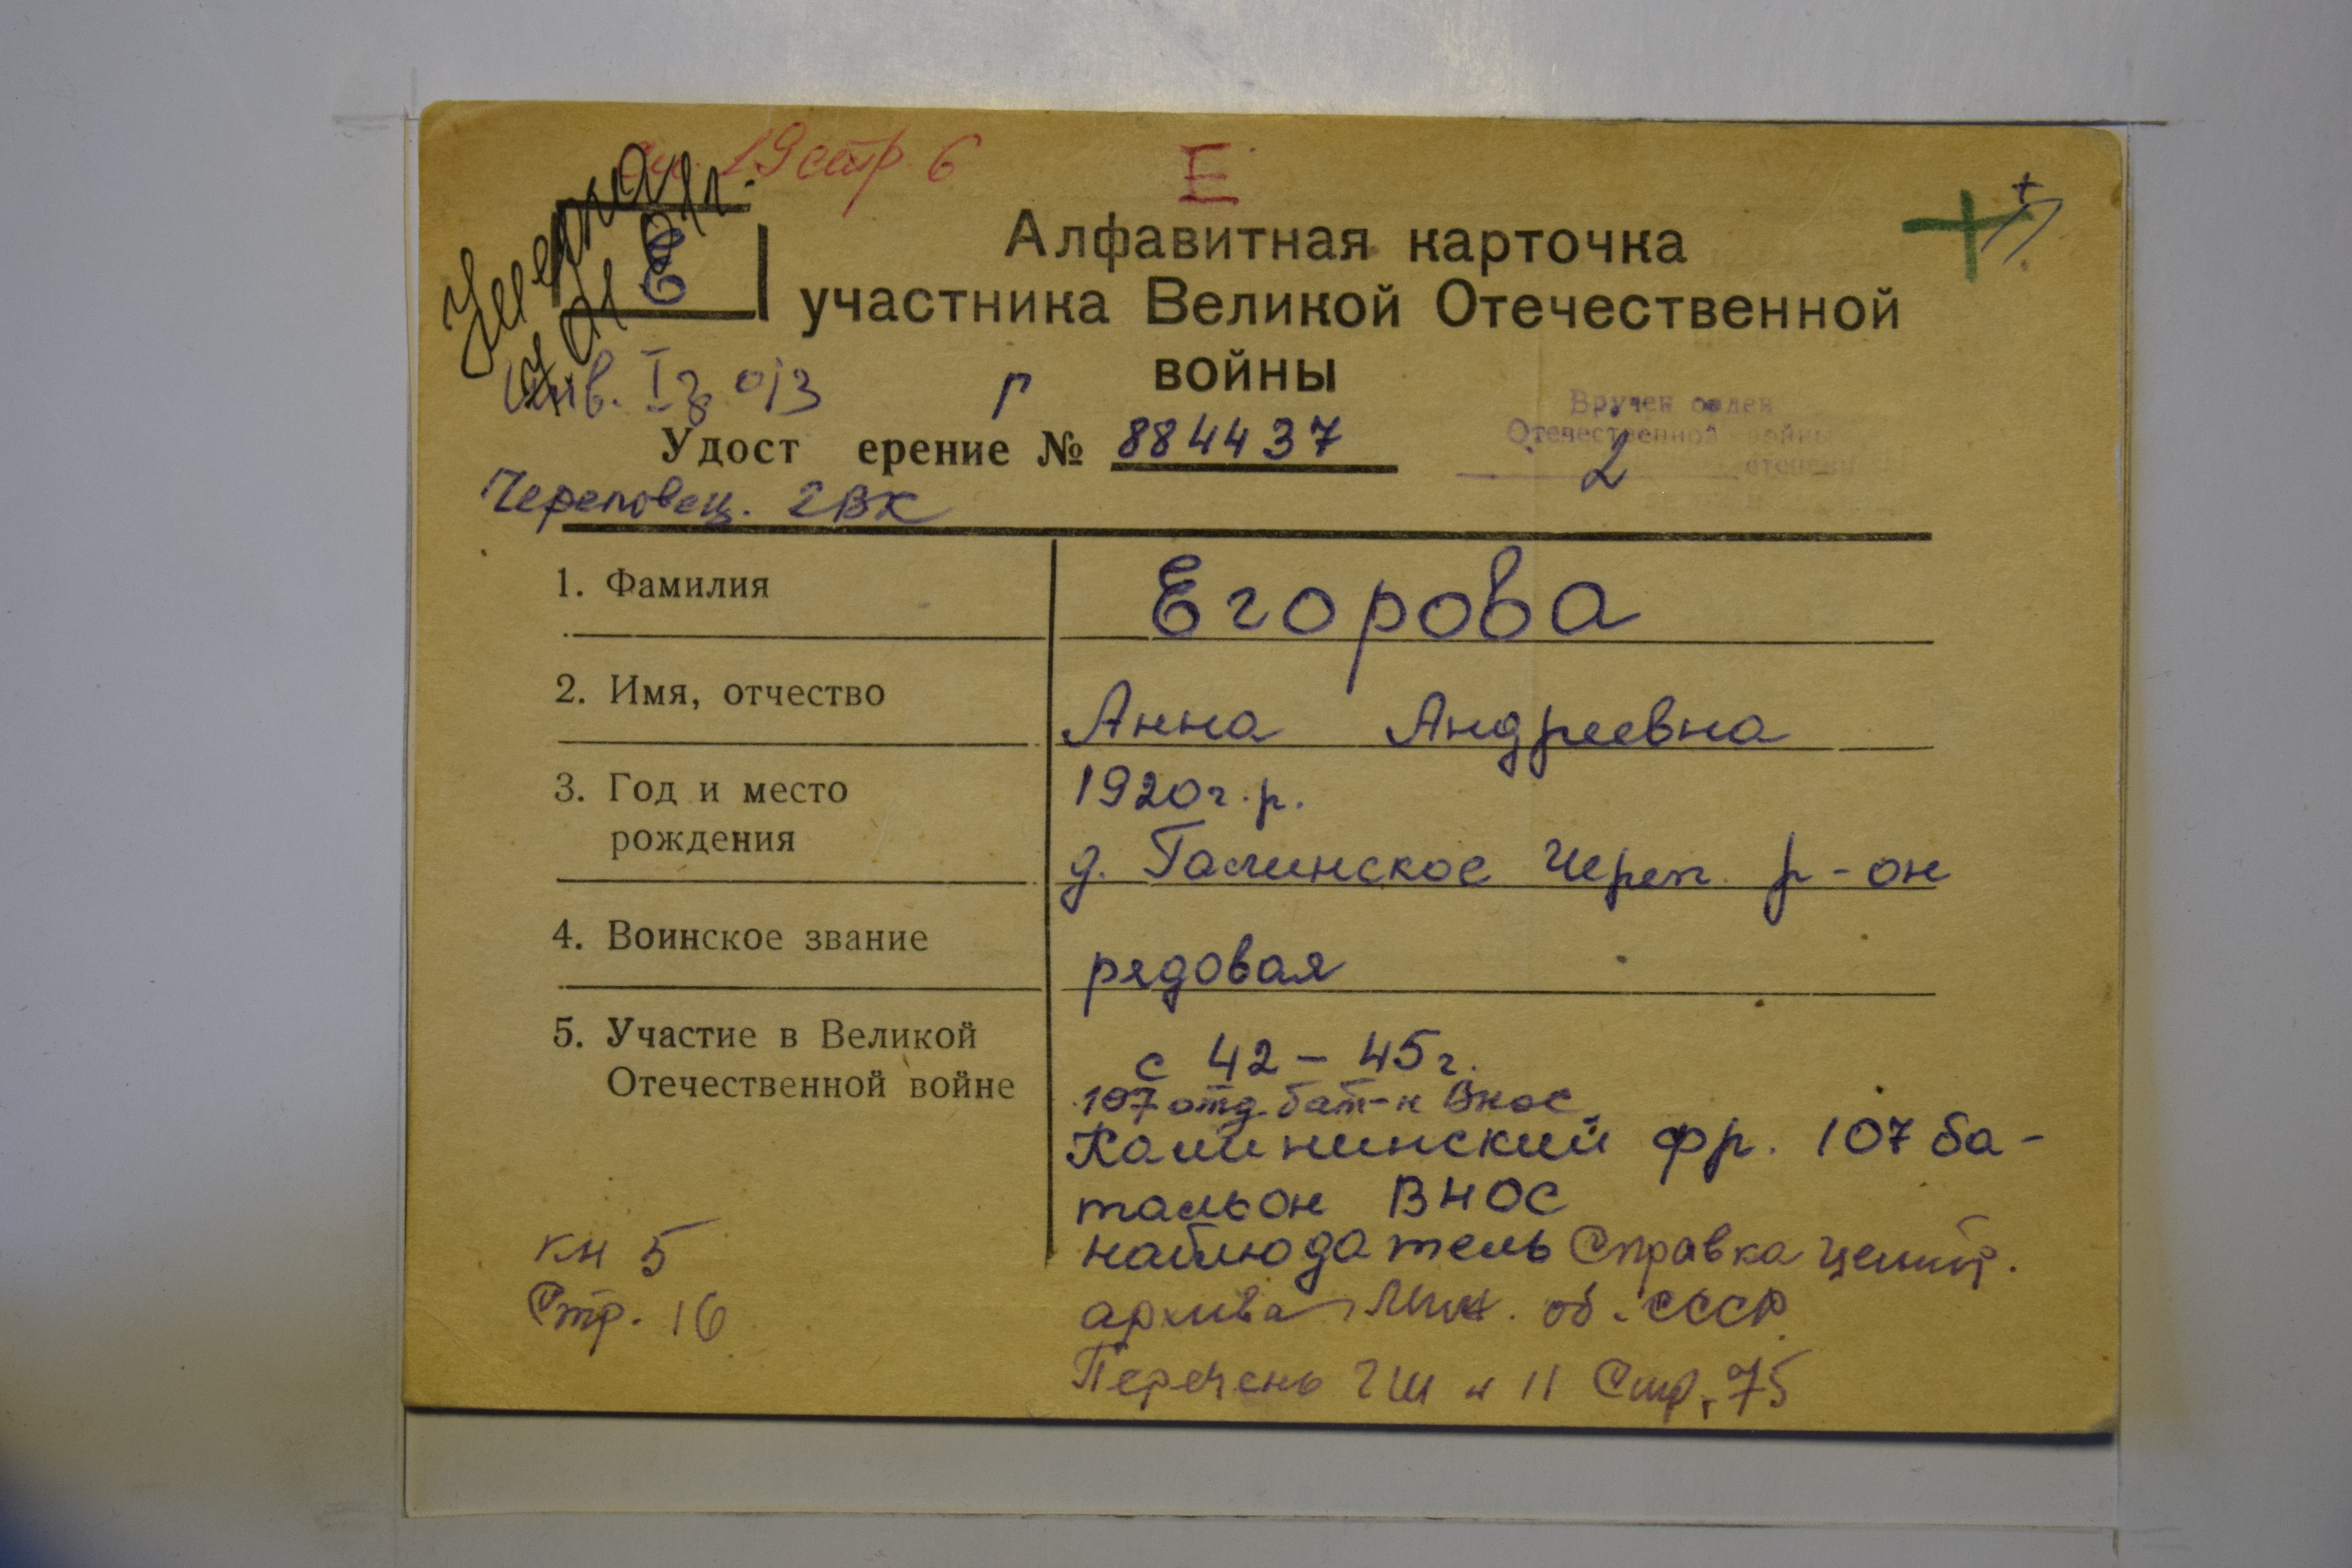 19 стр. 6
Е
Умерла
Е
Алфавитная карточка
участника Великой Отечественной
войны
Инв. I г
Вручен орден
Отечественной войны
2 степени
Удост ерение № 884437
Череповец. ГВК
1. Фамилия
Егорова
2. Имя, отчество
Анна Андреевна
3. Год и место
рождения
1920 г.р.
д. Галинское Череп. р-он
4. Воинское звание
рядовая
5. Участие в Великой
Отечественной войне
с 42 – 45 г.
107 отд. бат-н Внос
Калининский фр. 107 ба-
тальон ВНОС
наблюдатель Справка центр.
архива Мин. об. СССР
Перечень ГШ 11 Стр. 75
кн 5
Стр. 16